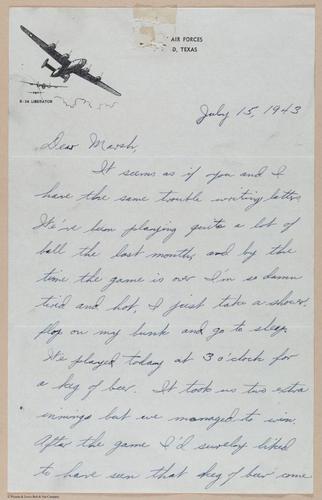 AIR FORCES
D, TEXAS
B-24 LIBERATOR
July 15, 1943
Dear Marsh,
It seems as if you and I
have the same trouble writing letters
We've been playing quite a lot of
ball the last month, and by the
time the game is over I'm so damn
tired and hot, I just take a shower
flop on my bunk and go to sleep.
We played today at 3 o'clock for
a keg of beer. It took us two extra
innings but we managed to win.
After the game I'd surely liked
to have seen that keg of beer come